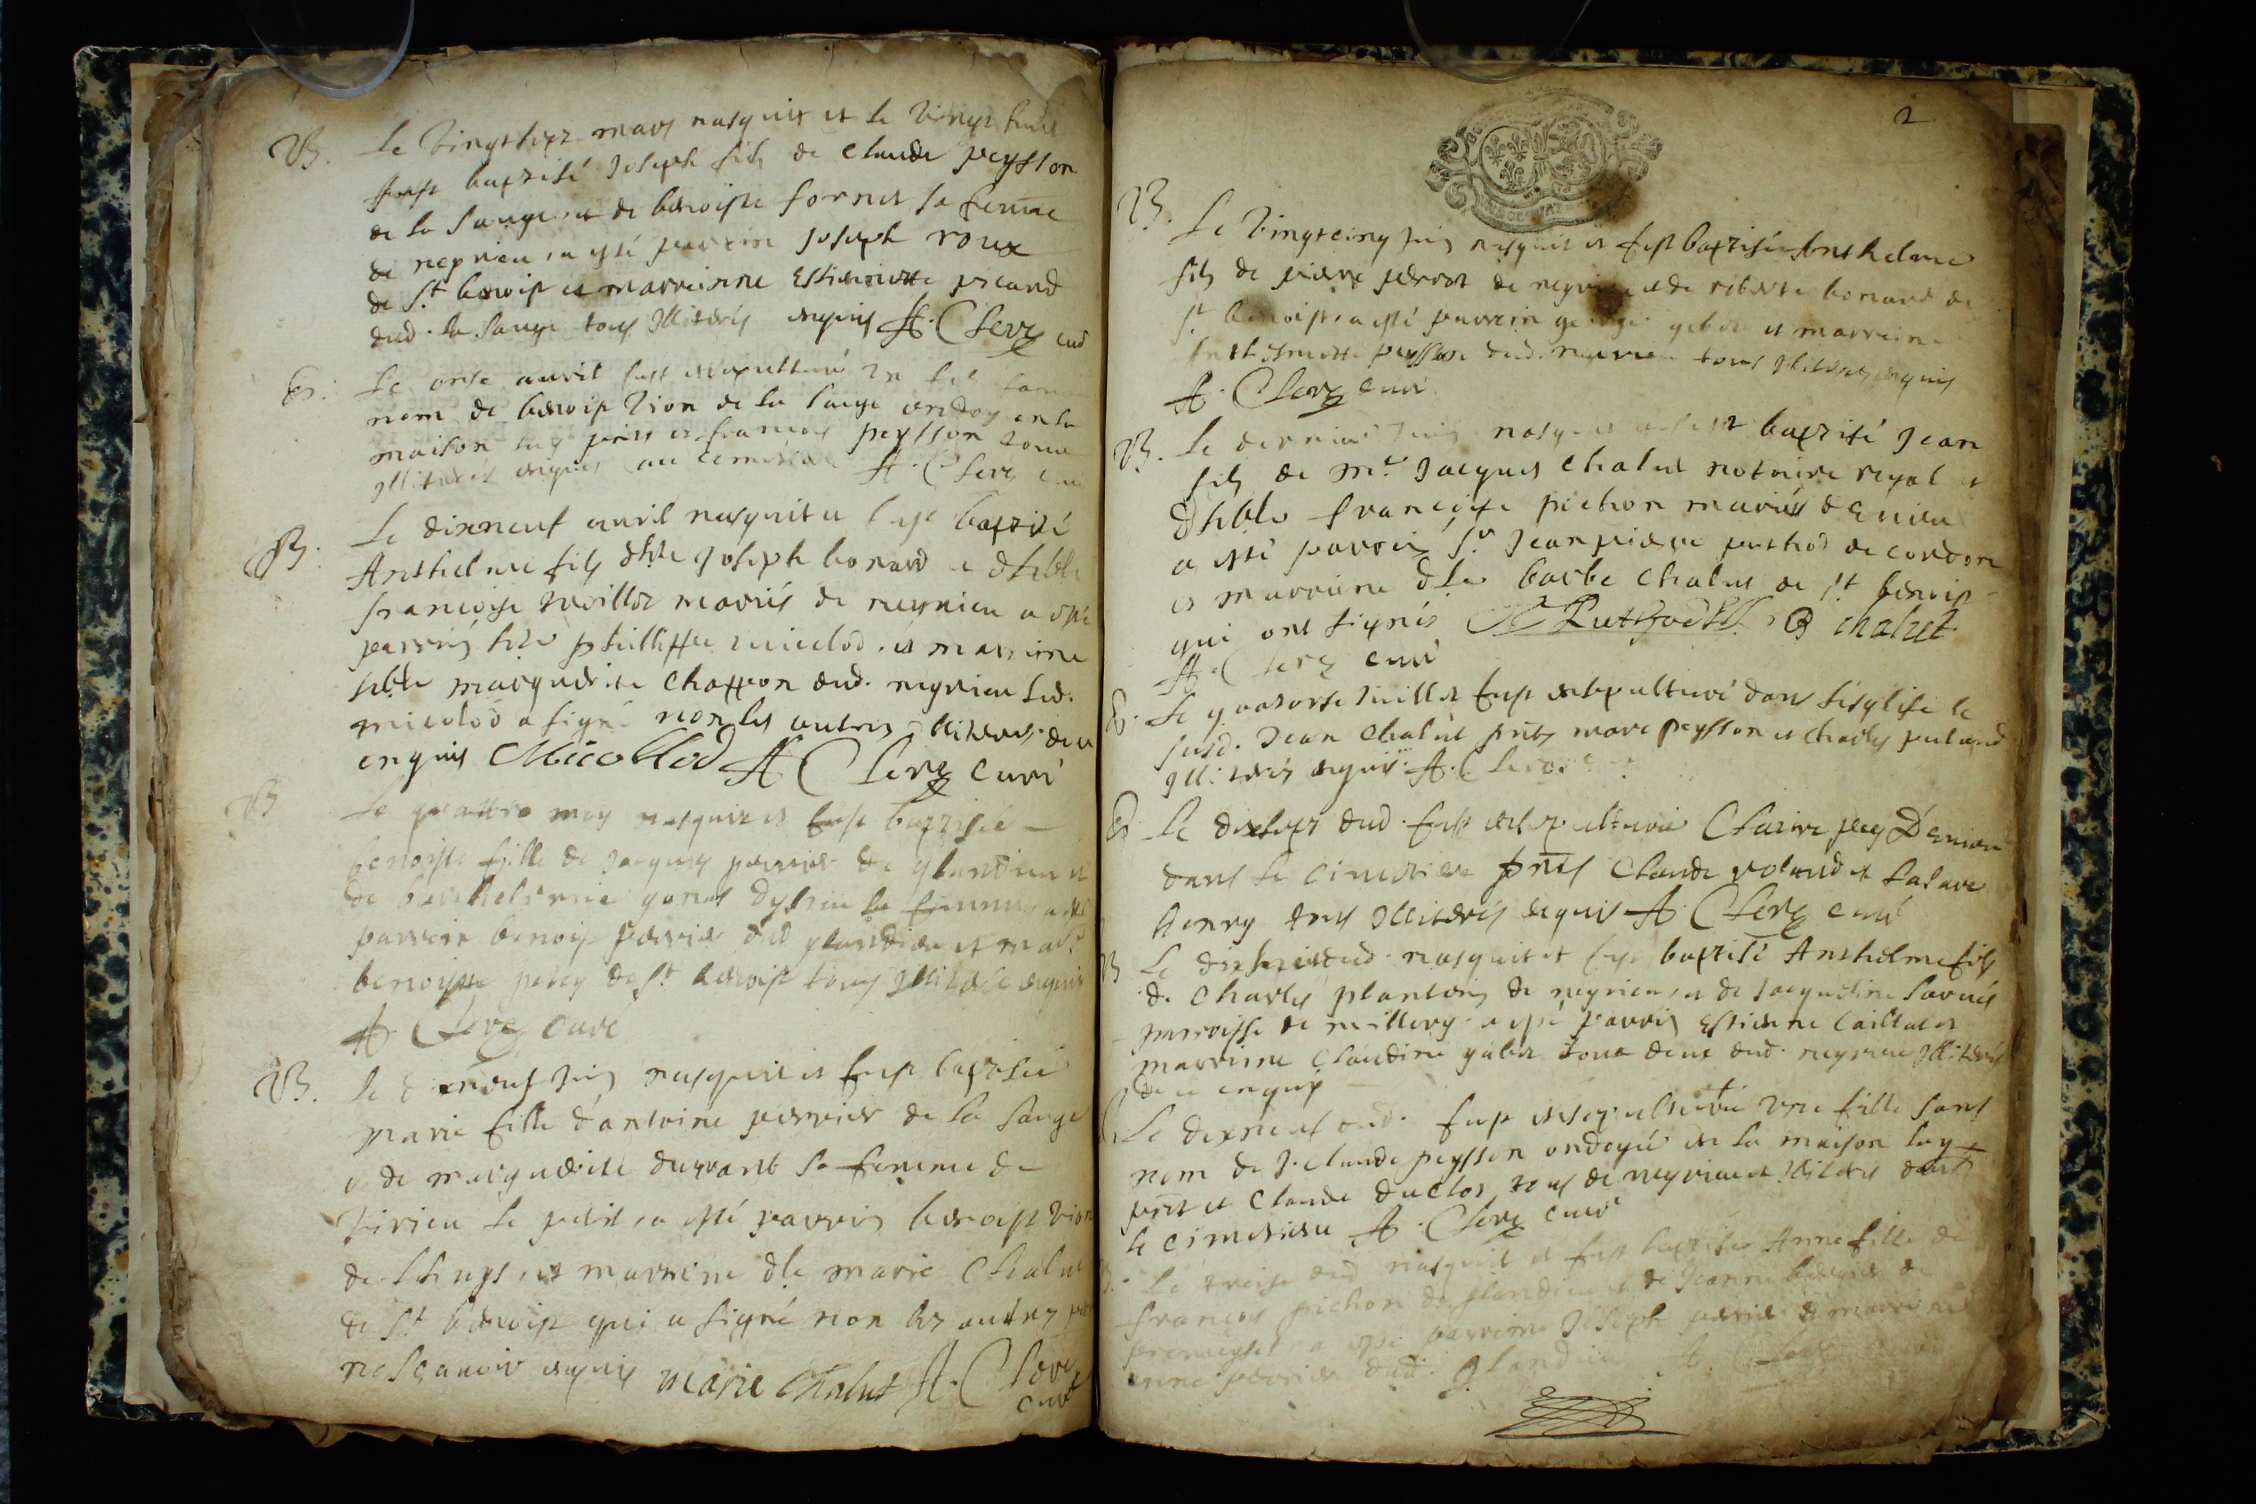 B. Le vingtsept mars nasquit et le vingt huit
fust baptisé Joseph fils de Claude peysson
de la Sauge et de benoiste fornet sa femme
de neyrieu, a esté parrin Joseph roux
de St benoist et marrienne Estiennette picand
dud. la Sauge tous Illiterés enquis A. Clerc curé
Le onse avril fust ensepulturé un fils sans
nom de benoist vion de la Sauge ondoyé en la
maison luy prnt et francois peysson tous
Illiterés enquis au cimetière A. Clerc curé
B. Le dixneuf avril nasquit et fust baptisé
Anthelme fils d'hble Joseph bonard et d'hble
francoise mariés de neyrieu a esté
parrin hble phillippe micolod et marrine
hble marguerite chappon dud. neyrieu led.
micolod a signé non les autres illiteres de ce
enquis Micollod A Clerc curé
B Le quattre may nasquit et fust baptisée
benoiste fille de Jacques perrier de glandieu et
de sa femme a esté
parrein benoist perrier dud glandieu et marr.
benoiste de St benoist tous Illiterés enquis
A. Clerc curé
B. le neuf Juin nasquit et fust baptisée
marie fille d'antoine perrier de la Sauge
et de marguerite durrant sa femme de
le petit, a esté parrin benoist vion
de et marrine dle marie Chalut
de St benoist qui a signé non les autres pour
ne scavoir enquis marie chalut A. Clerc
curé
2
B. Le vingtcinq Juin nasquit et fust baptisé Anthelme
fils de pierre perrot de neyrieu et de roberte bonard de
St benoist, a esté parrein george gebet et marreine
peysson dud. neyrieu tous Illiterés enquis
A. Clerc curé
B. Le dernier Juin nasquit et fust baptisé Jean
fils de Mr Jacques Chalut notaire royal et
d'hble francoise pichon mariés d'Enieu
a esté parrein Sr Jean pierre puthod de cordon
et marrine dle barbe Chalut de St benoist
qui ont signés Puthod B chalut
A. Clerc curé
Le quatorse Juillet fust ensepulturé dans l'esglise le
susd. Jean Chalut prnts marc peysson et Charles
Illiterés enquis A. Clerc
Le dixsept dud. fust ensepulturée Claire pey D'enieu
dans le cimetière prnts Claude et
henry tous Illiterés enquis A. Clerc curé
B Le dixhuit dud. nasquit et fust baptisé Anthelme fils
de Charles plantin de neyrieu, et de Jacqueline
parroisse de millery a esté parrin Estienne Caillat et
marrine Claudine gabet tous deux dud. neyrieu Illiterés
de ce enquis
Le dixneuf dud. fust ensepulturée une fille sans
nom de J. claude peysson ondoyée en la maison luy
prnt et Claude duclos tous de neyrieu et Illiterés dans
le cimetière A. Clerc curé
B. Le treise dud nasquit et fust baptisée Anne fille de
françois pichon de glandieu et de Jeanne de
a esté parrein Joseph perrier et marrine
anne perrier dud. Glandieu A. Clerc curé